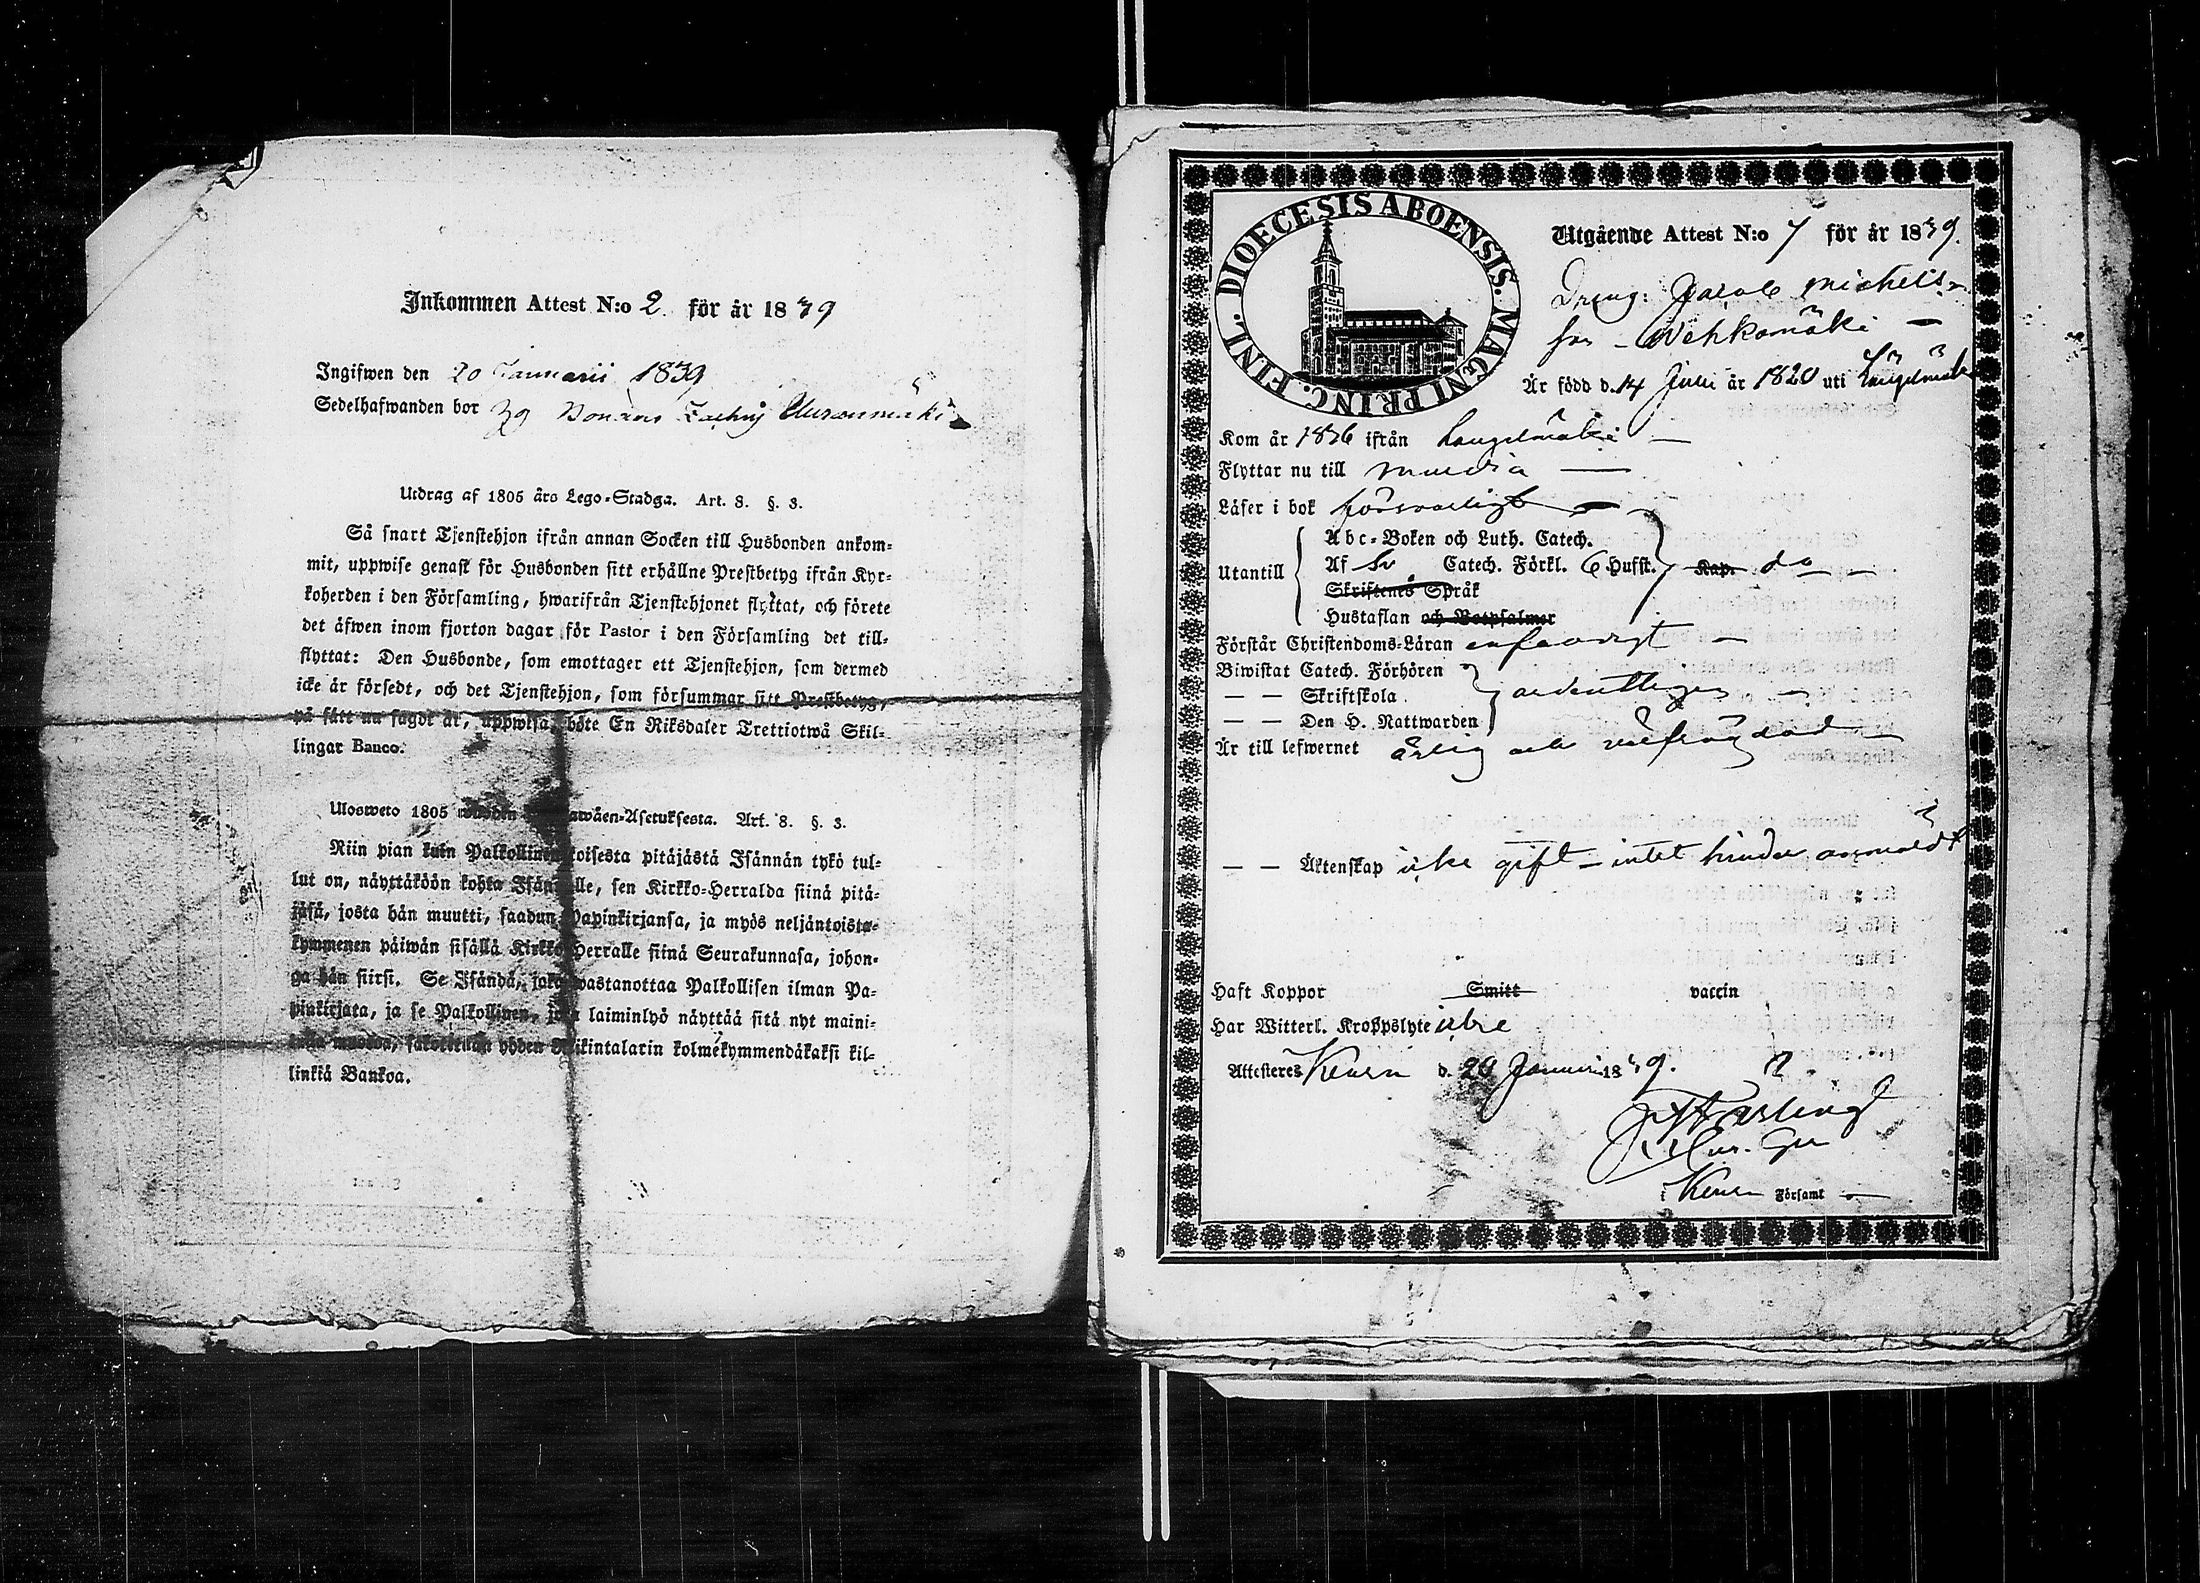 Inkommen Attest N:o 2. för år 1839
Ingifwen den 20 Januarii 1839
Sedelhafwanden bor
Utdrag af 1805 års Lego-Stadga. Art. 8. §. 3.
Så snart Tjenstehjon ifrån annan Socken till Husbonden ankom-
mit, uppwise genast för Husbonden sitt erhållne Prestbetyg ifrån Kyr-
koherden i den Församling, hwarifrån Tjenstehjonet flyttat, och förete
det äfwen inom fjorton dagar för Pastor i den Församling det till-
flyttat: Den Husbonde, som emottager ett Tjenstehjon, som dermed
icke är försedt, och det Tjenstehjon, som försummar sitt Prestbetyg,
på sätt nu sagdt är, uppwisa, böte En Riksdaler Trettiotwå Skil-
lingar Banco.
Ulosweto 1805 wuoden Asetuksesta. Art. 8. §. 3.
Niin pian kuin Palkollinen toisesta pitäjästä Isännän tykö tul-
lut on, näyttäköön kohta Isännälle, sen Kirkko-Herralda siinä pitä-
jäsä, josta hän muutti, saadun Papinkirjansa, ja myös neljäntoista-
kymmenen päiwän sisällä Kirkko-Herralle siinä Seurakunnasa, johon-
ga hän siirsi. Se Isändä, joka wastanottaa Palkollisen ilman Pa-
pinkirjata, ja se Palkollinen, joka laiminlyö näyttää sitä nyt maini-
tulla muodolla, sakoitetaan yhden Riikintalarin kolmekymmendäkaksi kil-
linkiä Bankoa.
DIOECESIS ABOENSIS. MAGNI PRINC. FINL.
Utgående Attest N:o 7 för år 1839.
Dreng: Jacob Michels-
son – Wehkomäki –
Är född d. 14 Juli år 1820 uti Längelmäki
Kom år 1836 ifrån Längelmäki –
Flyttar nu till
Läser i bok försvarligt –
Utantill
Abc-Boken och Luth. Catech.
Af Sv Catech. Förkl. 6 Hufst. Kap. do –
Skriftenes Språk
Hustaflan och Botpsalmer
Förstår Christendoms-Läran enfaldigt –
Biwistat Catech. Förhören
— — Skriftskola
— — Den H. Nattwarden
ordentligen –
Är till lefwernet ärlig och välfrägdad –
— — Äktenskap icke gift – intet hinder anmäldt
Haft Koppor Smitt vaccin
Har Witterl. Kroppslyte icke
Attesteras Keuru d. 20 Januari 1839.
i Keuru Församl –